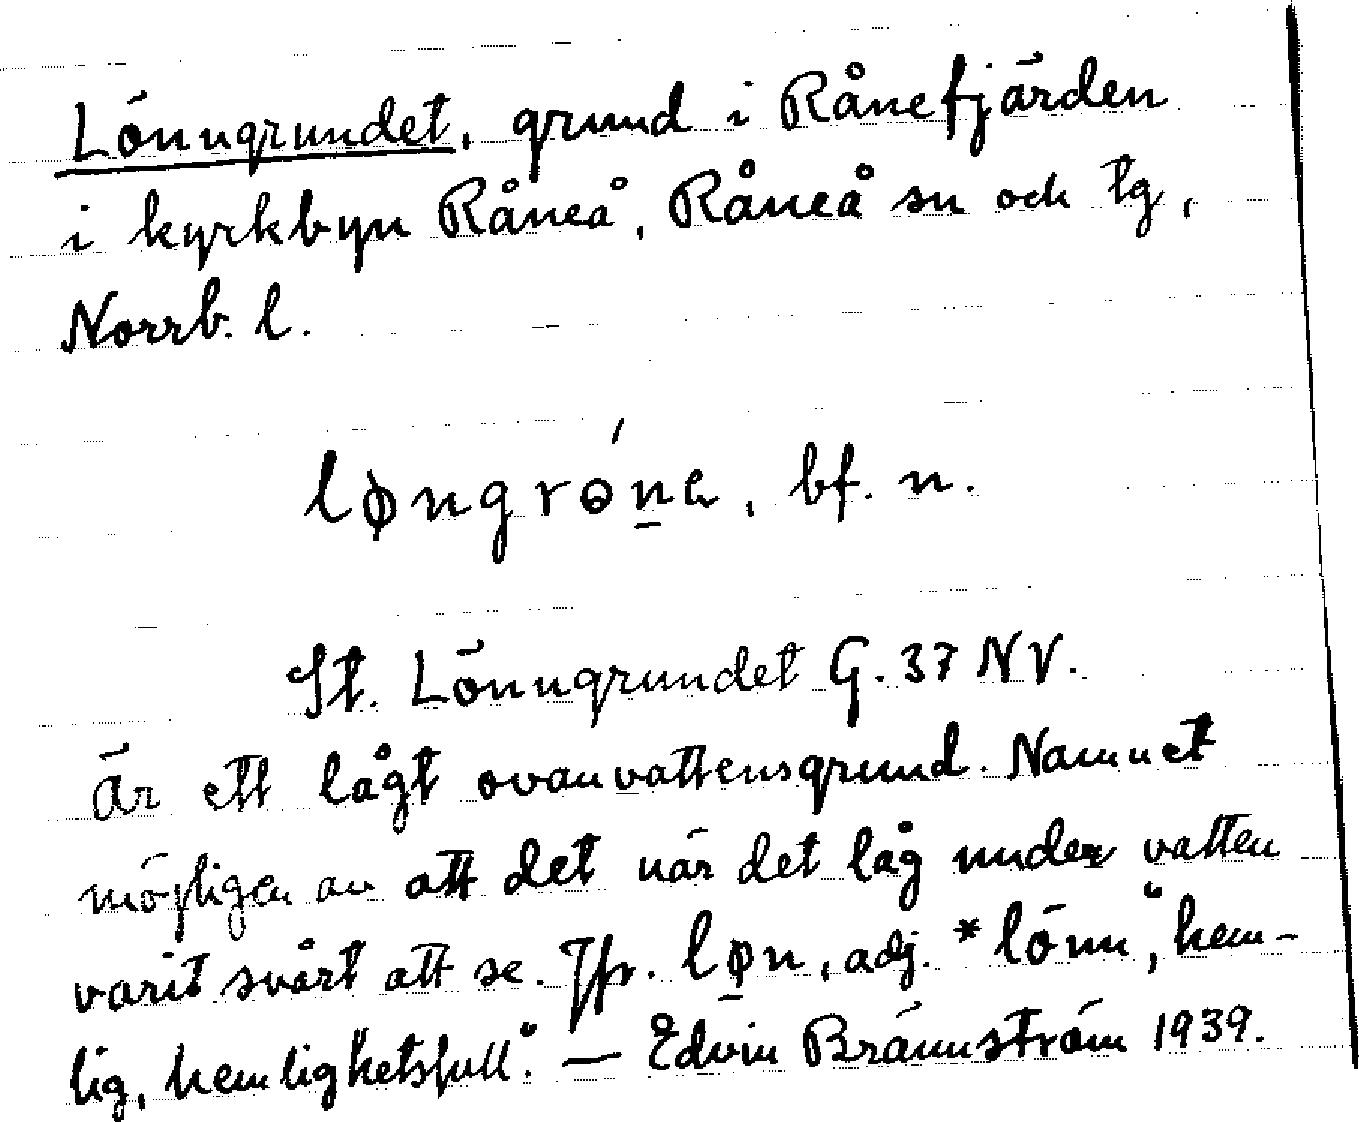 Lönngrundet, grund i Rånefjärden
i kyrkbyn Råneå, Råneå sn och tg,
Norrb. l.
løngrɵ́n̲a, bf. n.
St. Lönngrundet G. 37 NV.
Är ett lågt ovanvattensgrund. Namnet
möjligen av att det när det låg under vatten
varit svårt att se. Jfr. lø̲n, adj. *lönn, "hem-
lig, hemlighetsfull". — Edvin Brännström 1939.